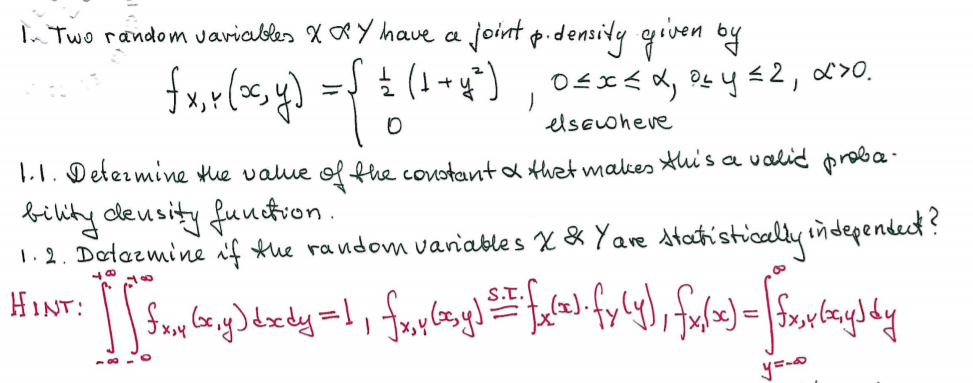 1. Two random variables X & Y have a joint p. density given by
f_{X,Y}(x,y) = { 1/2 (1+y²) , 0≤x≤α, 0≤y≤2, α>0.
0 elsewhere
1.1. Determine the value of the constant α that makes this a valid proba-
bility density function.
1.2. Determine if the random variables X & Y are statistically independent?
HINT: ∫_{-∞}^{+∞} ∫_{-∞}^{+∞} f_{X,Y}(x,y) dx dy = 1, f_{X,Y}(x,y) =^{S.I.} f_X(x)·f_Y(y), f_X(x) = ∫_{y=-∞}^{∞} f_{X,Y}(x,y) dy